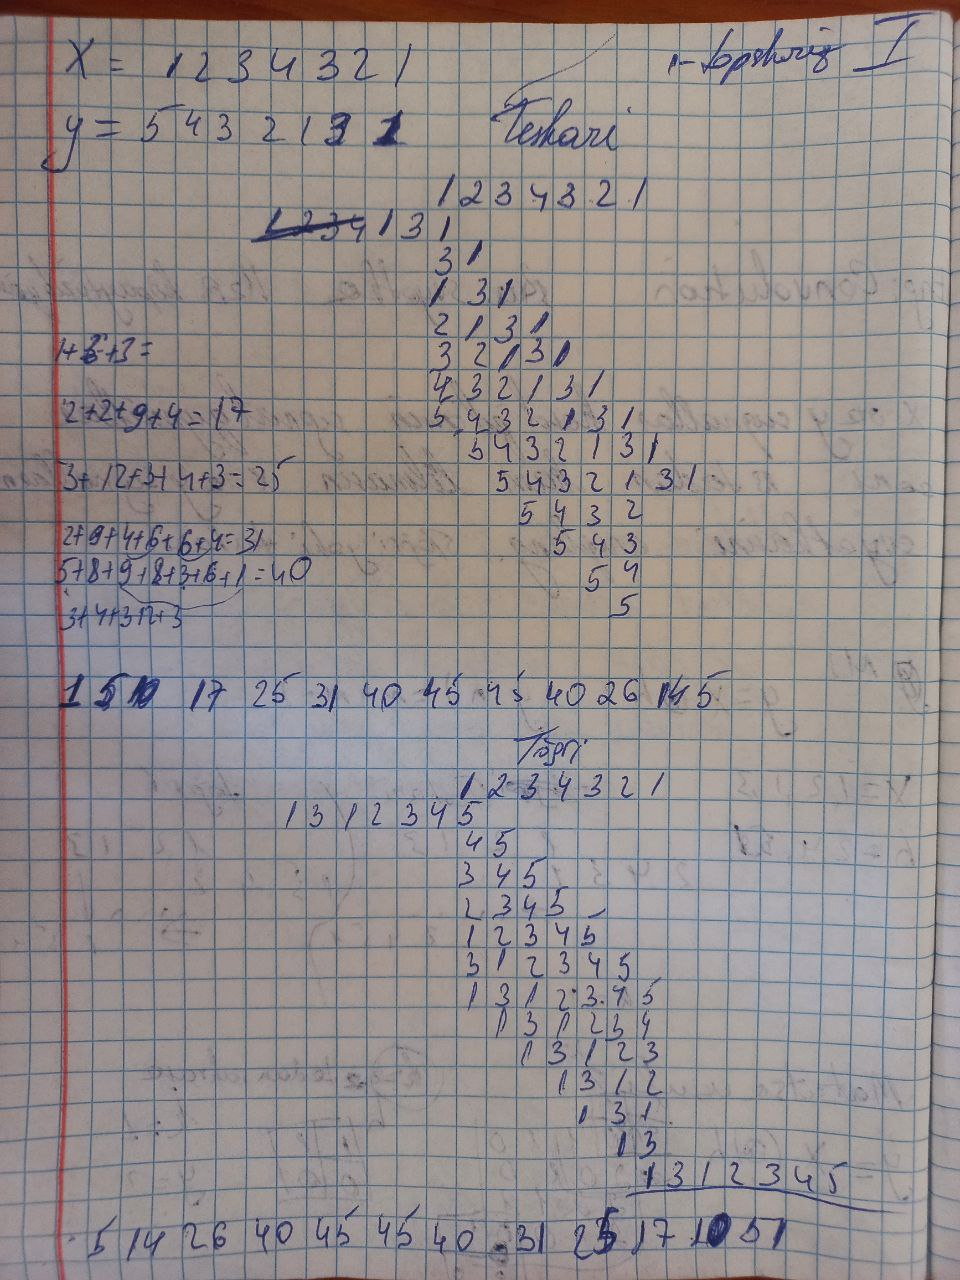 X = 1 2 3 4 3 2 1
1-topshiriq I
y = 5 4 3 2 1 3 1
Teskari
1 2 3 4 3 2 1
1 2 3 4 1 3 1
3 1
1 3 1
2 1 3 1
1+6+3=
3 2 1 3 1
4 3 2 1 3 1
2+2+9+4=17
5 4 3 2 1 3 1
5 4 3 2 1 3 1
3+12+3+4+3=25
5 4 3 2 1 3 1
5 4 3 2
2+9+4+6+6+4=31
5 4 3
5+8+9+8+3+6+1=40
5 4
3+4+3+2+3
5
1 5 10 17 25 31 40 45 45 40 26 14 5
To'g'ri
1 2 3 4 3 2 1
1 3 1 2 3 4 5
4 5
3 4 5
2 3 4 5
1 2 3 4 5
3 1 2 3 4 5
1 3 1 2 3 4 5
1 3 1 2 3 4
1 3 1 2 3
1 3 1 2
1 3 1
1 3
1 3 1 2 3 4 5
5 14 26 40 45 45 40 31 25 17 10 5 1